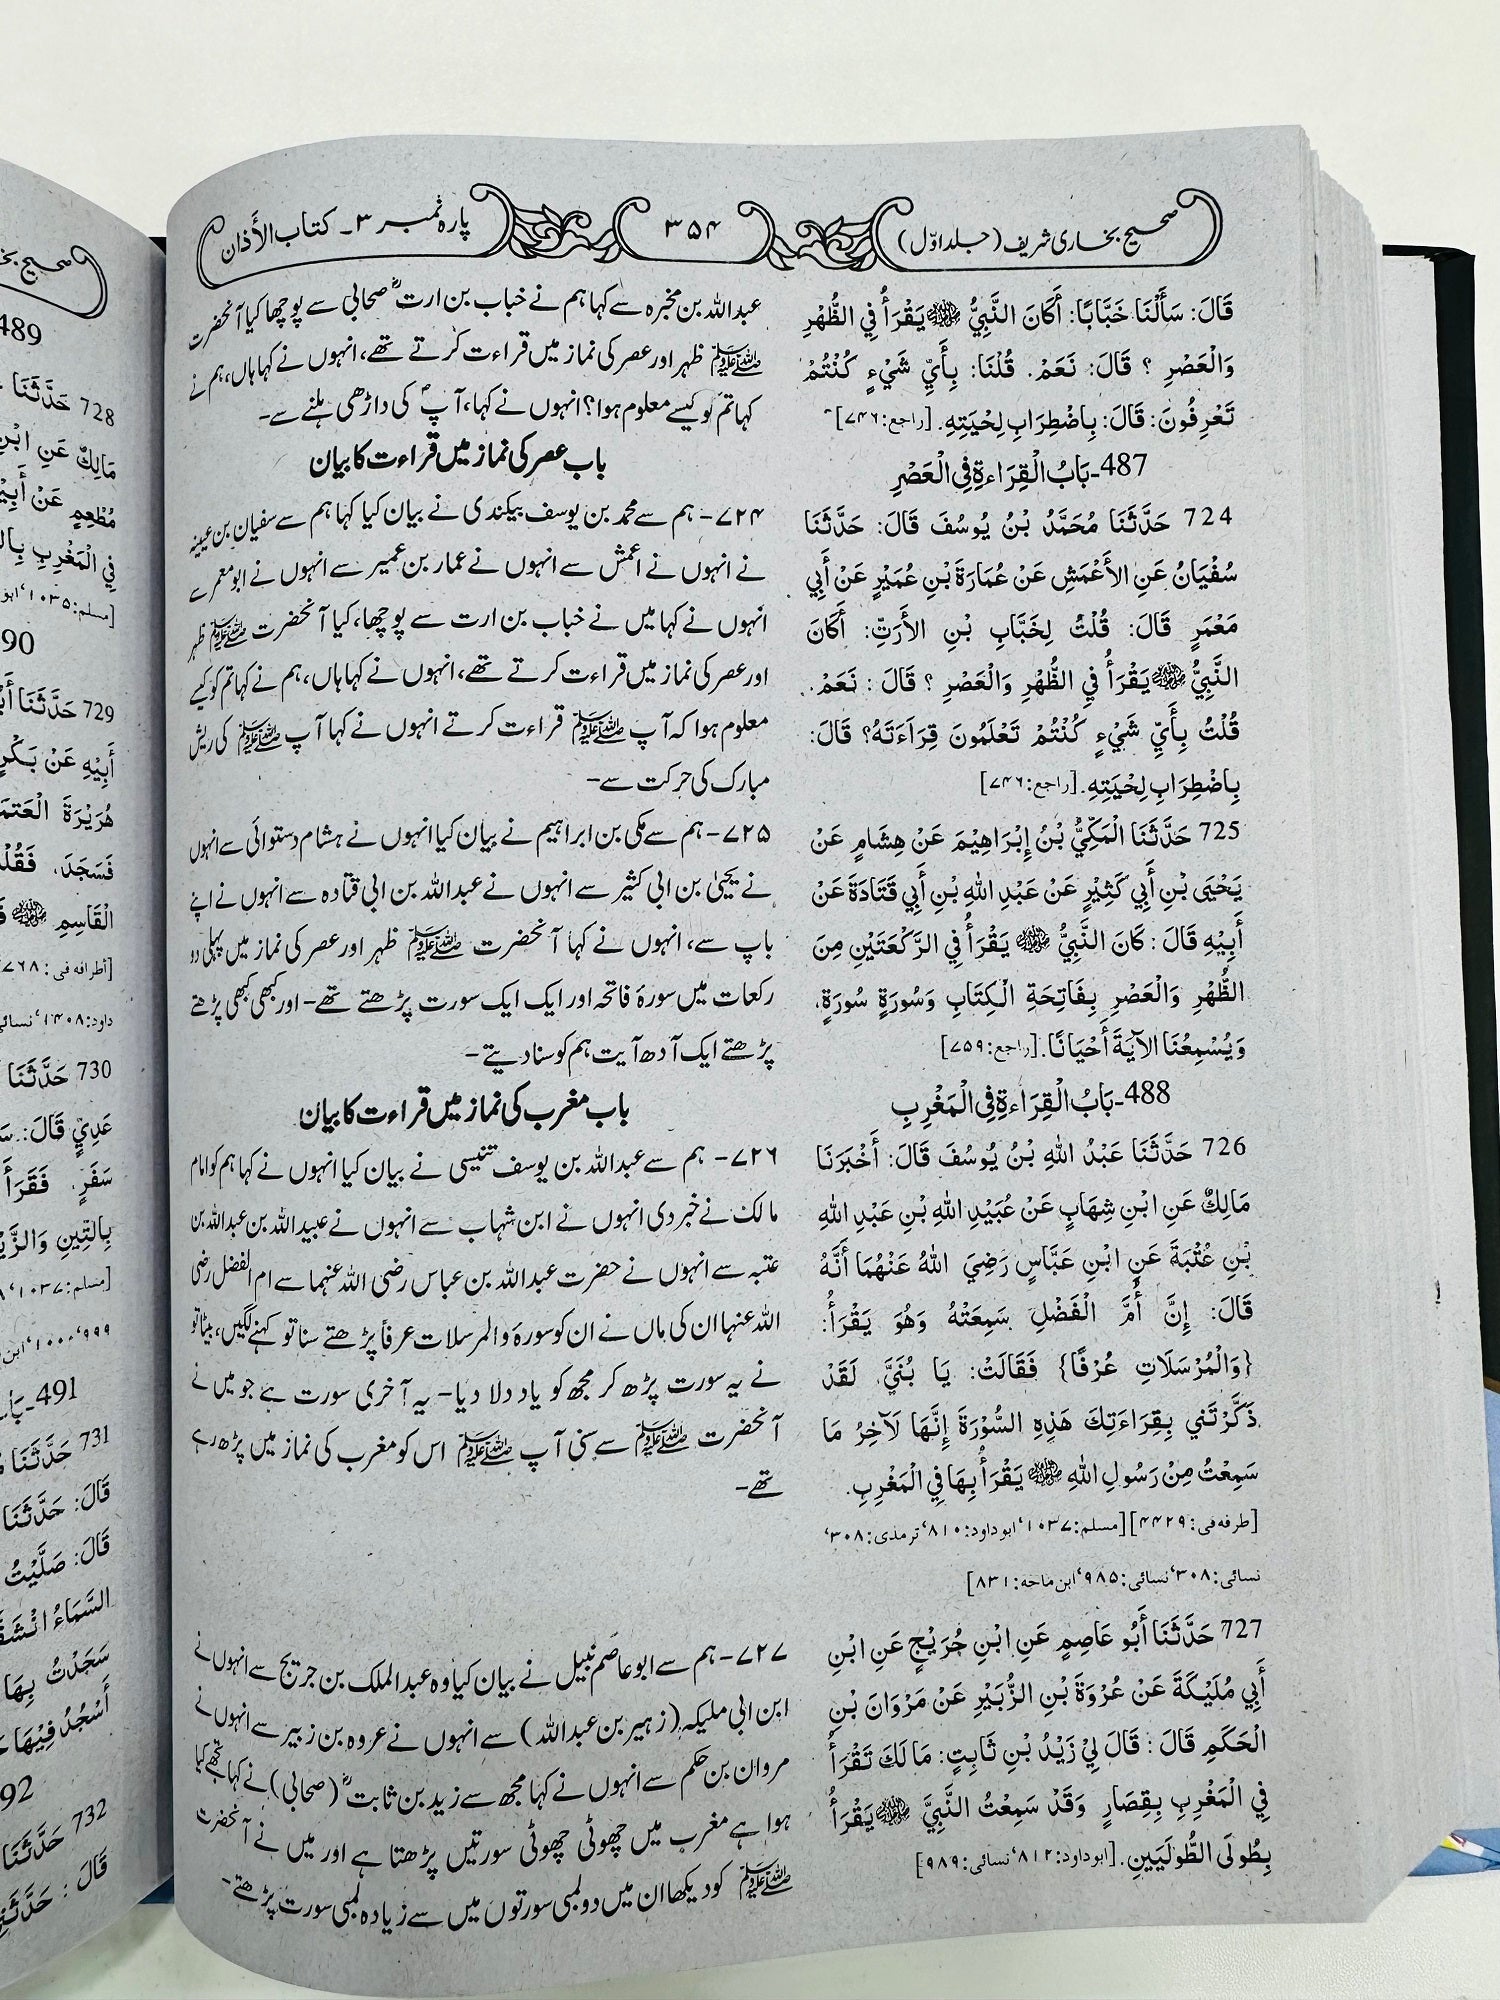 صحیح بخاری شریف (جلد اوّل)
۳۵۴
پارہ نمبر ۳۔ کتاب الأذان
قَالَ: سَأَلْنَا خَبَّابًا: أَكَانَ النَّبِيُّ ﷺ يَقْرَأُ فِي الظُّهْرِ
وَالْعَصْرِ ؟ قَالَ: نَعَمْ. قُلْنَا: بِأَيِّ شَيْءٍ كُنْتُمْ
تَعْرِفُونَ: قَالَ: بِاضْطِرَابِ لِحْيَتِهِ. [راجع: ۷۴۶]
487۔بَابُ الْقِرَاءةِ فِي الْعَصْرِ
724 حَدَّثَنَا مُحَمَّدُ بْنُ يُوسُفَ قَالَ: حَدَّثَنَا
سُفْيَانُ عَنِ الأَعْمَشِ عَنْ عُمَارَةَ بْنِ عُمَيْرٍ عَنْ أَبِي
مَعْمَرٍ قَالَ: قُلْتُ لِخَبَّابِ بْنِ الأَرَتِّ: أَكَانَ
النَّبِيُّ ﷺ يَقْرَأُ فِي الظُّهْرِ وَالْعَصْرِ ؟ قَالَ : نَعَمْ.
قُلْتُ بِأَيِّ شَيْءٍ كُنْتُمْ تَعْلَمُونَ قِرَاءَتَهُ؟ قَالَ:
بِاضْطِرَابِ لِحْيَتِهِ. [راجع: ۷۴۶]
725 حَدَّثَنَا الْمَكِّيُّ بْنُ إِبْرَاهِيْمَ عَنْ هِشَامٍ عَنْ
يَحْيَى بْنِ أَبِي كَثِيْرٍ عَنْ عَبْدِ اللهِ بْنِ أَبِي قَتَادَةَ عَنْ
أَبِيْهِ قَالَ : كَانَ النَّبِيُّ ﷺ يَقْرَأُ فِي الرَّكْعَتَيْنِ مِنَ
الظُّهْرِ وَالْعَصْرِ بِفَاتِحَةِ الْكِتَابِ وَسُورَةٍ سُورَةٍ،
وَيُسْمِعُنَا الآيَةَ أَحْيَانًا. [راجع: ۷۵۹]
488۔بَابُ الْقِرَاءةِ فِي الْمَغْرِبِ
726 حَدَّثَنَا عَبْدُ اللهِ بْنُ يُوسُفَ قَالَ: أَخْبَرَنَا
مَالِكٌ عَنِ ابْنِ شِهَابٍ عَنْ عُبَيْدِ اللهِ بْنِ عَبْدِ اللهِ
بْنِ عُتْبَةَ عَنِ ابْنِ عَبَّاسٍ رَضِيَ اللهُ عَنْهُمَا أَنَّهُ
قَالَ: إِنَّ أُمَّ الْفَضْلِ سَمِعَتْهُ وَهُوَ يَقْرَأُ:
{وَالْمُرْسَلَاتِ عُرْفًا} فَقَالَتْ: يَا بُنَيَّ لَقَدْ
ذَكَّرْتَنِي بِقِرَاءَتِكَ هَذِهِ السُّوْرَةَ إِنَّهَا لَآخِرُ مَا
سَمِعْتُ مِنْ رَسُولِ اللهِ ﷺ يَقْرَأُ بِهَا فِي الْمَغْرِبِ.
[طرفه في: ۴۴۲۹] [مسلم: ۱۰۳۷، ابو داود: ۸۱۰، ترمذی: ۳۰۸،
نسائی: ۳۰۸، نسائی: ۹۸۵، ابن ماجه: ۸۳۱]
727 حَدَّثَنَا أَبُو عَاصِمٍ عَنِ ابْنِ جُرَيْجٍ عَنِ ابْنِ
أَبِي مُلَيْكَةَ عَنْ عُرْوَةَ بْنِ الزُّبَيْرِ عَنْ مَرْوَانَ بْنِ
الْحَكَمِ قَالَ : قَالَ لِيْ زَيْدُ بْنِ ثَابِتٍ: مَا لَكَ تَقْرَأُ
فِي الْمَغْرِبِ بِقِصَارٍ وَقَدْ سَمِعْتُ النَّبِيَّ ﷺ يَقْرَأُ
بِطُولَى الطُّولَيَيْنِ. [ابو داود: ۸۱۲، نسائی: ۹۸۹]
عبداللہ بن مخبرہ سے کہا ہم نے خباب بن ارتؓ صحابی سے پوچھا کیا آنحضرت
ﷺ ظہر اور عصر کی نماز میں قراءت کرتے تھے، انہوں نے کہا ہاں، ہم نے
کہا تم کو کیسے معلوم ہوا؟ انہوں نے کہا، آپؐ کی داڑھی ہلنے سے۔
باب عصر کی نماز میں قراءت کا بیان
۷۲۴- ہم سے محمد بن یوسف بیکندی نے بیان کیا کہا ہم سے سفیان بن عیینہ
نے انہوں نے اعمش سے انہوں نے عمار بن عمیر سے انہوں نے ابو معمر سے
انہوں نے کہا میں نے خباب بن ارت سے پوچھا، کیا آنحضرت ﷺ ظہر
اور عصر کی نماز میں قراءت کرتے تھے، انہوں نے کہا ہاں، ہم نے کہا تم کو کیسے
معلوم ہوا کہ آپ ﷺ قراءت کرتے انہوں نے کہا آپ ﷺ کی ریش
مبارک کی حرکت سے-
۷۲۵- ہم سے مکی بن ابراہیم نے بیان کیا انہوں نے ہشام دستوائی سے انہوں
نے یحییٰ بن ابی کثیر سے انہوں نے عبداللہ بن ابی قتادہ سے انہوں نے اپنے
باپ سے، انہوں نے کہا آنحضرت ﷺ ظہر اور عصر کی نماز میں پہلی دو
رکعات میں سورۂ فاتحہ اور ایک ایک سورت پڑھتے تھے- اور کبھی کبھی پڑھتے
پڑھتے ایک آدھ آیت ہم کو سنا دیتے-
باب مغرب کی نماز میں قراءت کا بیان
۷۲۶- ہم سے عبداللہ بن یوسف تنیسی نے بیان کیا انہوں نے کہا ہم کو امام
مالک نے خبر دی انہوں نے ابن شہاب سے انہوں نے عبیداللہ بن عبداللہ بن
عتبہ سے انہوں نے حضرت عبداللہ بن عباس رضی اللہ عنہما سے ام الفضل رضی
اللہ عنہا ان کی ماں نے ان کو سورۂ والمرسلات عرفا پڑھتے سنا تو کہنے لگیں، بیٹا تو
نے یہ سورت پڑھ کر مجھ کو یاد دلا دیا- یہ آخری سورت ہے جو میں نے
آنحضرت ﷺ سے سنی آپ ﷺ اس کو مغرب کی نماز میں پڑھ رہے
تھے-
۷۲۷- ہم سے ابوعاصم نبیل نے بیان کیا وہ عبدالملک بن جریج سے انہوں نے
ابن ابی ملیکہ (زہیر بن عبداللہ) سے انہوں نے عروہ بن زبیر سے انہوں نے
مروان بن حکم سے انہوں نے کہا مجھ سے زید بن ثابتؓ (صحابی) نے کہا تجھے کیا
ہوا ہے مغرب میں چھوٹی چھوٹی سورتیں پڑھتا ہے اور میں نے آنحضرت
ﷺ کو دیکھا ان میں دو لمبی سورتوں میں سے زیادہ لمبی سورت پڑھتے-
489
728 حَدَّثَنَا
مَالِكٌ عَنِ ابْنِ
مُطْعِمٍ عَنْ أَبِيْ
فِي الْمَغْرِبِ
[مسلم: ۱۰۳۵،
90
729 حَدَّثَنَا
أَبِيْهِ عَنْ بَكْرٍ
هُرَيْرَةَ
فَسَجَدَ،
الْقَاسِمِ ﷺ
[أطرافه في: ۷۶۸
داود: ۱۴۰۸، نسائی
730 حَدَّثَنَا
عَدِيٍّ قَالَ:
سَفَرٍ، فَقَرَأَ
بِالتِّيْنِ
[مسلم: ۱۰۳۷،
491۔
731 حَدَّثَنَا
قَالَ: حَدَّثَنَا
قَالَ: صَلَّيْتُ
السَّمَاءُ
سَجَدْتُ بِهَا
أَسْجُدُ فِيْهَا
92
732 حَدَّثَنَا
قَالَ : حَدَّثَنِيْ